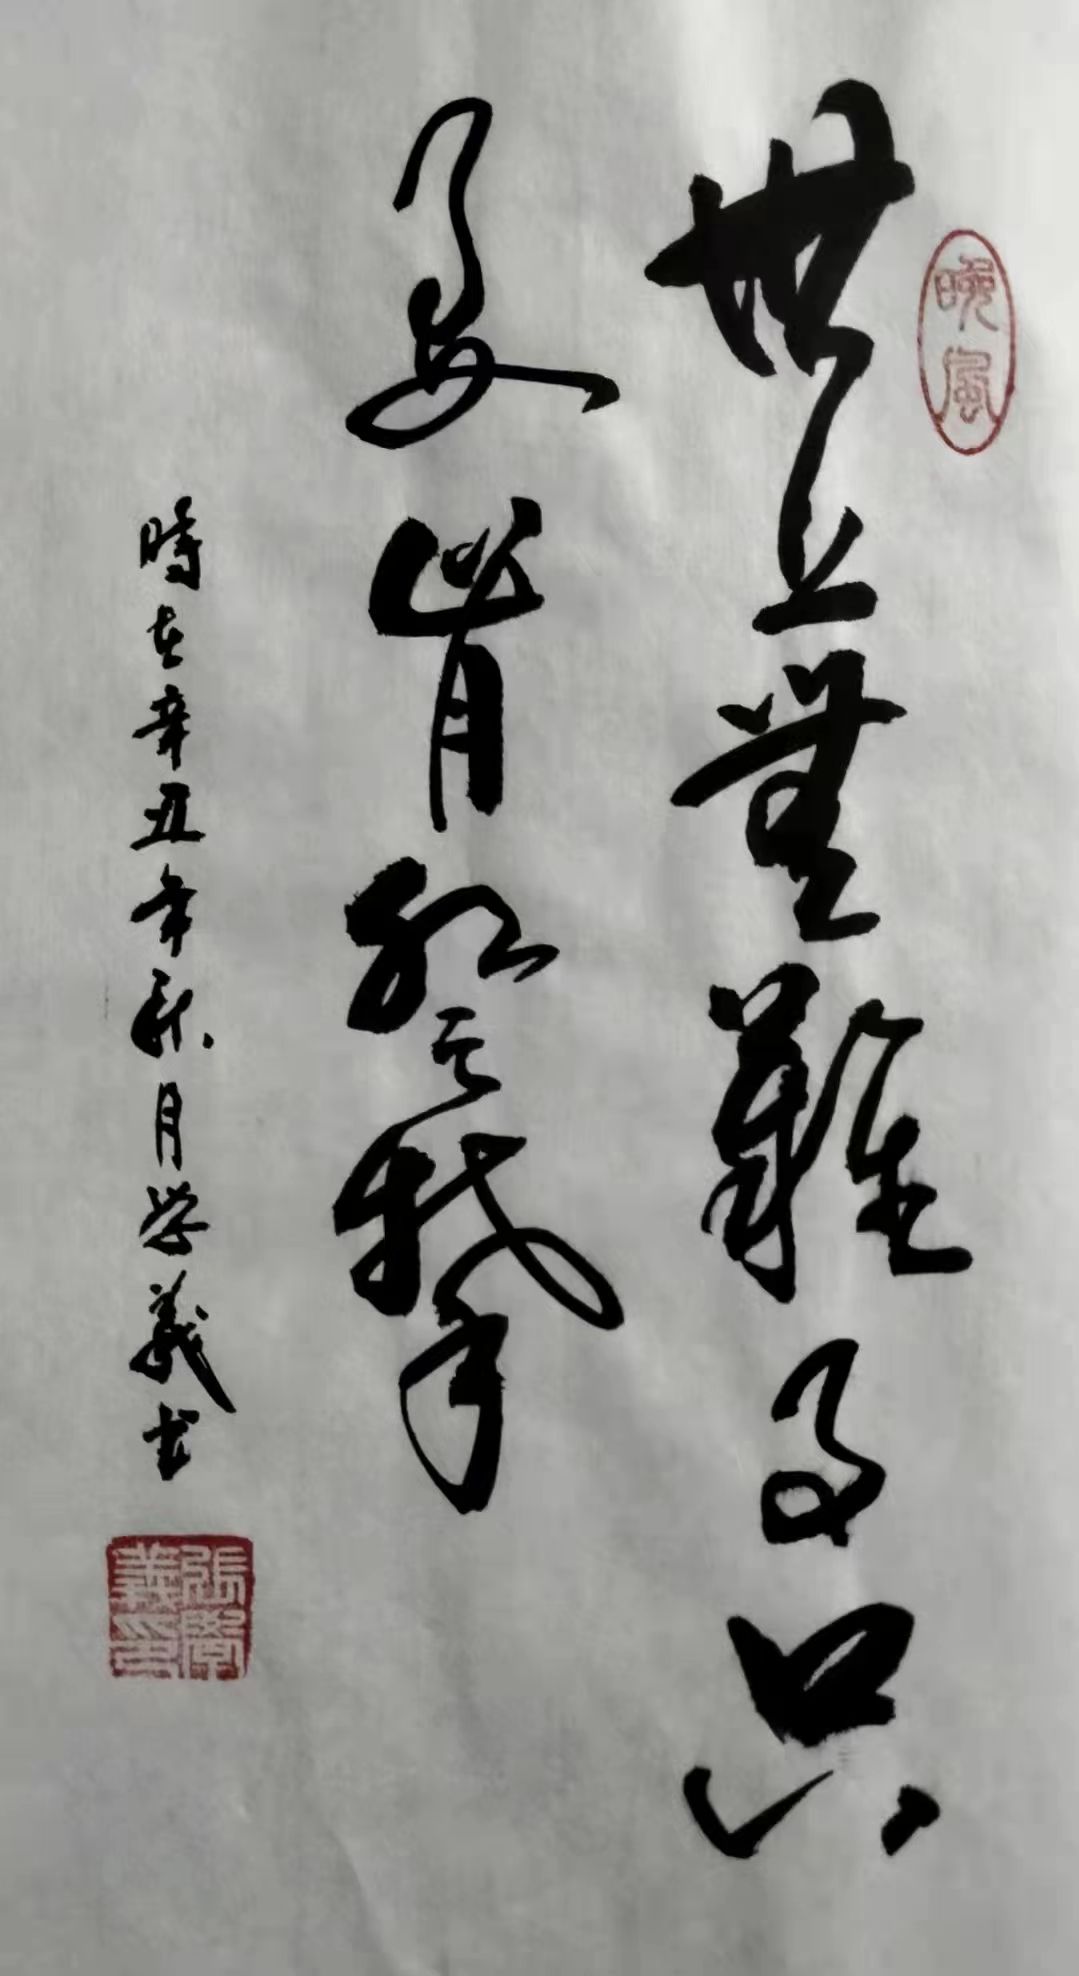 世上無難事只
要肯登攀
時在辛丑年秋月学義书
晚風
張學義印